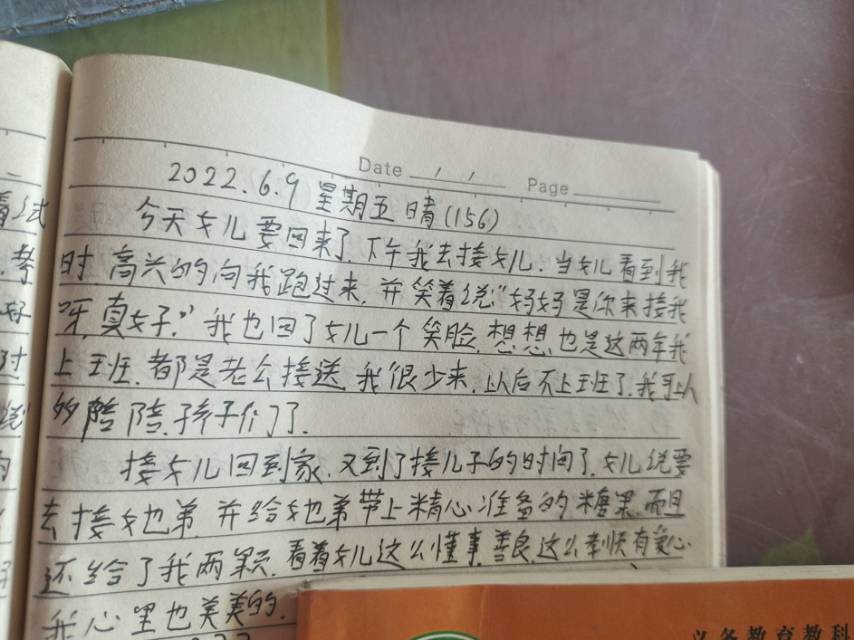 Date / /    Page
2022.6.9 星期五 晴(156)
今天女儿要回来了.下午我去接女儿.当女儿看到我
时.高兴的向我跑过来.并笑着说"妈妈是你来接我
呀.真好."我也回了女儿一个笑脸.想想也是这两年我
上班.都是老公接送.我很少来.以后不上班了.我可以
的陪陪孩子们了.
接女儿回到家.又到了接儿子的时间了.女儿说要
去接她弟.并给她弟带上精心准备的糖果.而且
还给了我两颗.看着女儿这么懂事.善良.这么孝顺有爱心
我心里也美美的.
着说
孝
好
时
说
义务教育教科